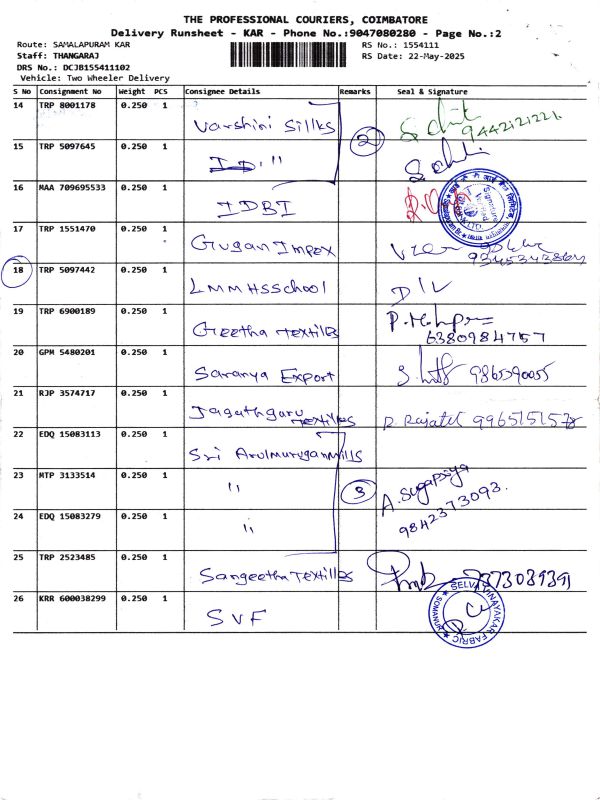 THE PROFESSIONAL COURIERS, COIMBATORE
Delivery Runsheet - KAR - Phone No.:9047080280 - Page No.:2
Route: SAMALAPURAM KAR RS No.: 1554111
Staff: THANGARAJ RS Date: 22-May-2025
DRS No.: DCJB155411102
Vehicle: Two Wheeler Delivery
S No Consignment No Weight PCS Consignee Details Remarks Seal & Signature
14 TRP 8001178 0.250 1 Varshini Sillks 2 9442121221
15 TRP 5097645 0.250 1 "
16 MAA 709695533 0.250 1 IDBI
17 TRP 1551470 0.250 1 Gugan Impex
18 TRP 5097442 0.250 1 LMMHSSchool D/L
19 TRP 6900189 0.250 1 Geetha Textiles
6380984757
20 GPM 5480201 0.250 1 Saranya Export 986590055
21 RJP 3574717 0.250 1 Jagathguru Textiles
22 EDQ 15083113 0.250 1 Sri Arulmurugan Mills
23 MTP 3133514 0.250 1 " 3 A. Sugapriya
9842373093.
24 EDQ 15083279 0.250 1 "
25 TRP 2523485 0.250 1 Sangeetha Textiles
26 KRR 600038299 0.250 1 SVF
SELVAVINAYAKAR FABRIC